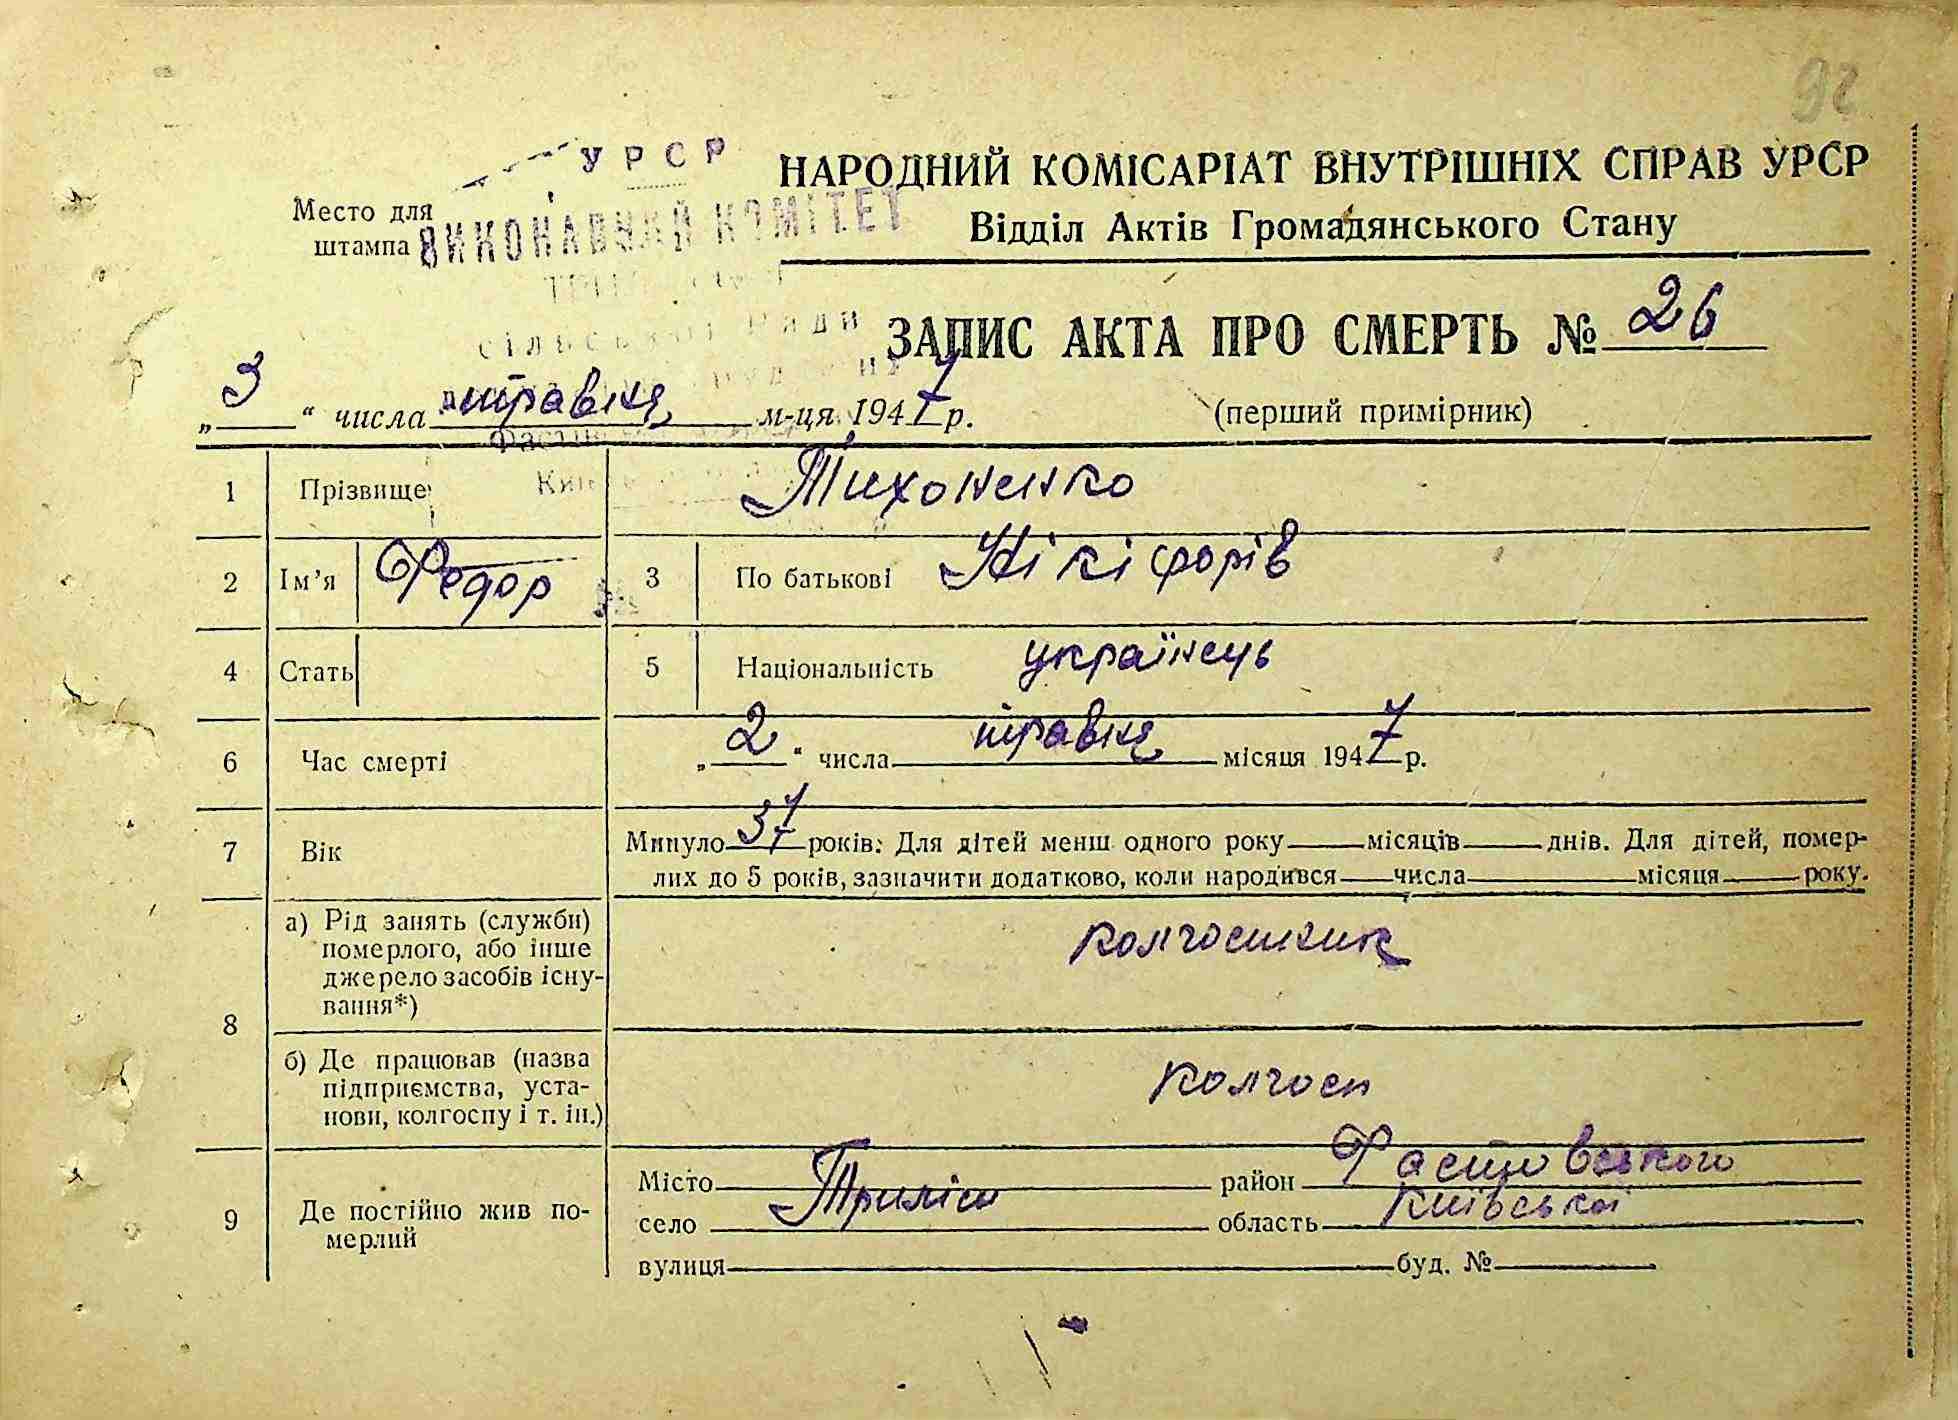 92
УРСР
Место для
штампа
ВИКОНАВЧИЙ КОМІТЕТ
сільської Ради
НАРОДНИЙ КОМІСАРІАТ ВНУТРІШНІХ СПРАВ УРСР
Відділ Актів Громадянського Стану
ЗАПИС АКТА ПРО СМЕРТЬ № 26
„3“ числа травня м-ця 1947 р.
(перший примірник)
1 Прізвище Тихоненко
2 Ім’я Федор 3 По батькові Нікіфорів
4 Стать 5 Національність українець
6 Час смерті „2“ числа травня місяця 1947 р.
7 Вік Минуло 37 років. Для дітей менш одного року місяців днів. Для дітей, помер-
лих до 5 років, зазначити додатково, коли народився числа місяця року.
8 а) Рід занять (служби)
померлого, або інше
джерело засобів існу-
вання*)
колгоспник
б) Де працював (назва
підприємства, уста-
нови, колгоспу і т. ін.)
колгосп
9 Де постійно жив по-
мерлий
Місто район Фастовського
село Триліси область Київської
вулиця буд. №